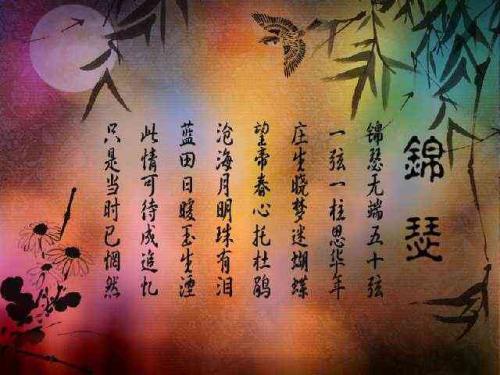 錦瑟
锦瑟无端五十弦
一弦一柱思华年
庄生晓梦迷蝴蝶
望帝春心托杜鹃
沧海月明珠有泪
蓝田日暖玉生湮
此情可待成追忆
只是当时已惘然